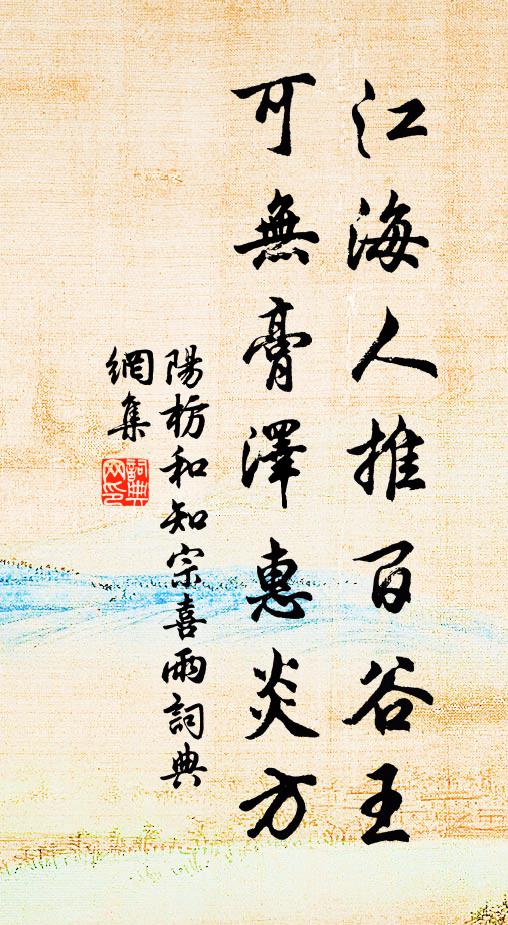 江海人推百谷王
可無膏澤惠炎方
陽枋和知宗喜雨詞典
網集
詞典
网印